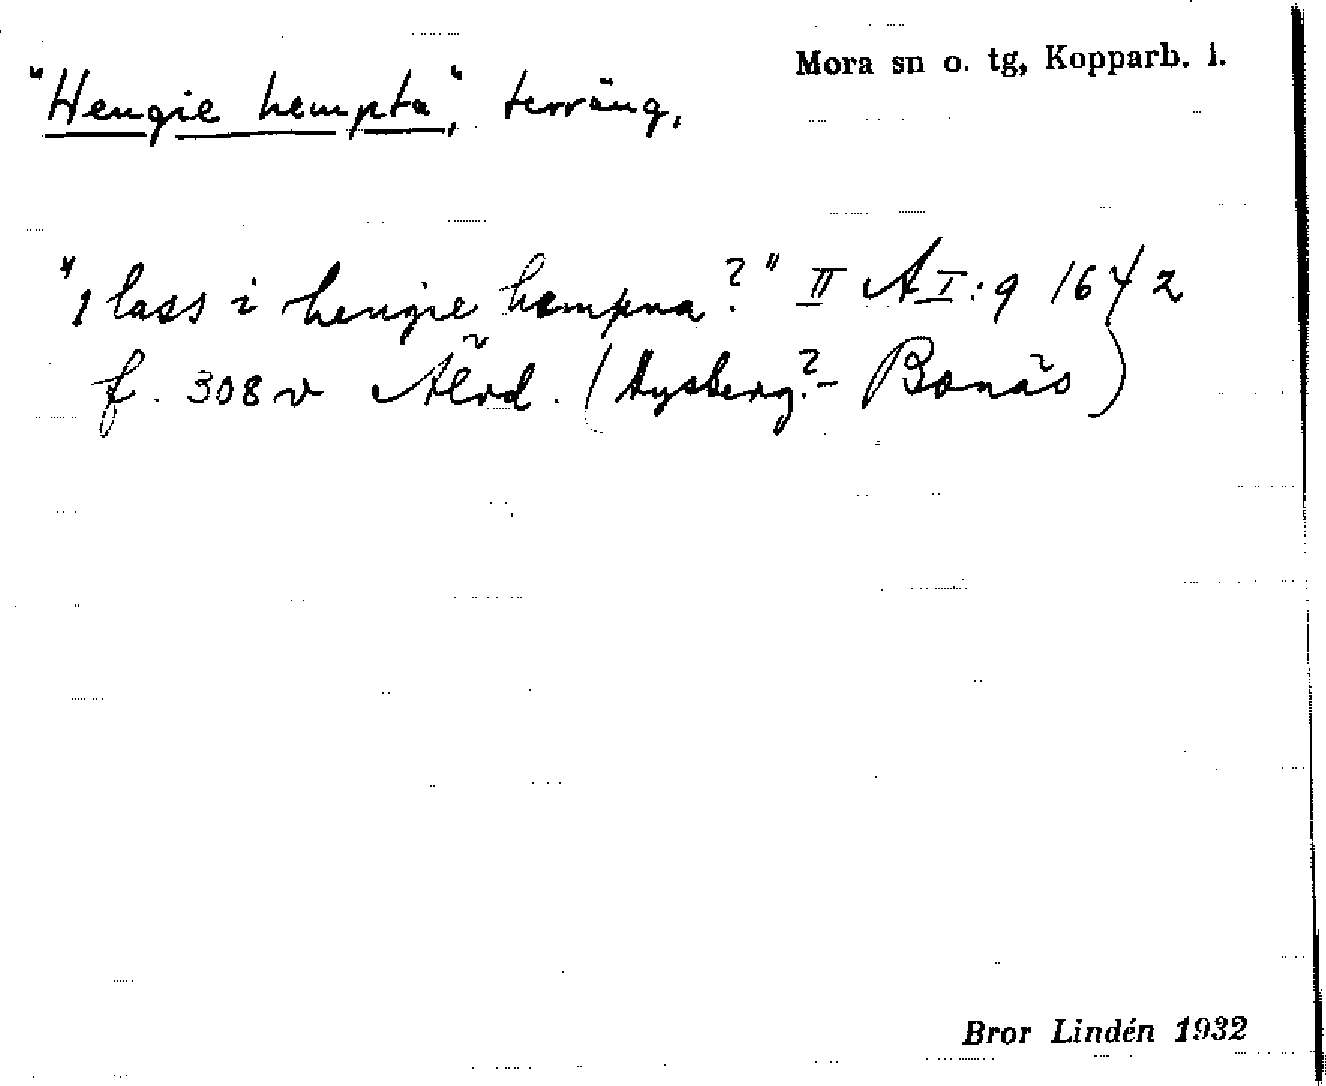 Mora sn o. tg, Kopparb. l.
"Hengie hempta", terräng.
"1 lass i hengie hempna?" II A I:9 1642
f. 308 v Älvd. (Hysberg?- Bonäs)
Bror Lindén 1932